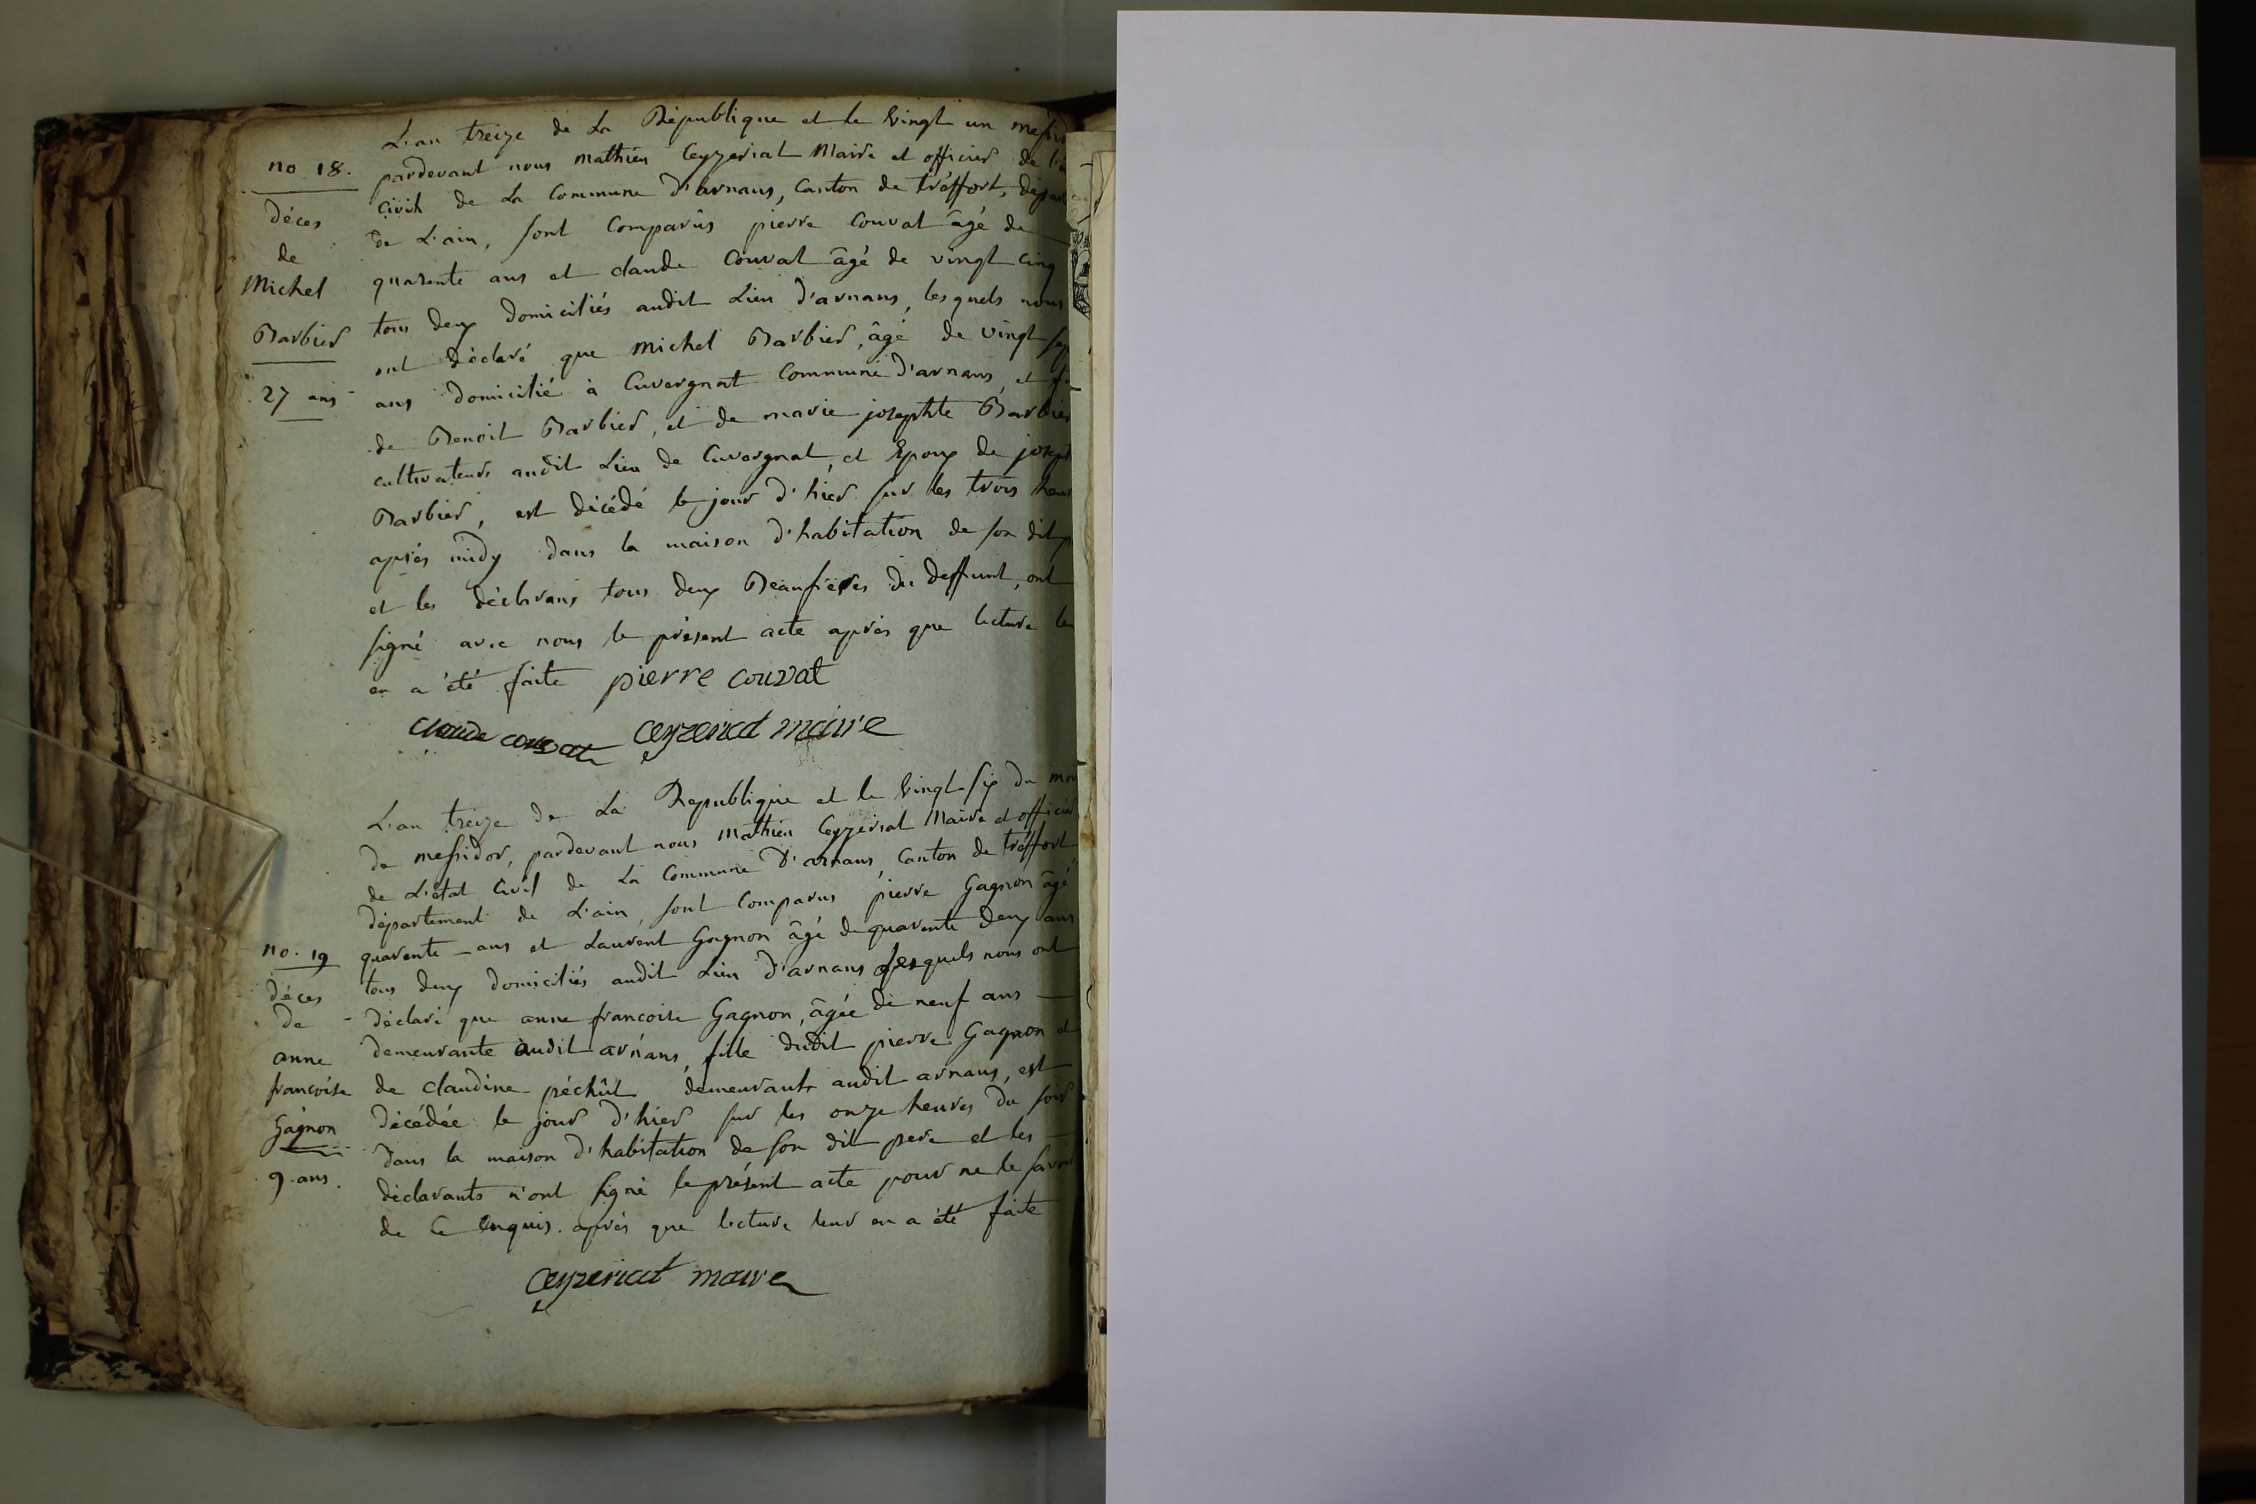 no 18.
Déces
de
Michel
Barbier
27 ans
L'an treize de La République et le vingt un messid
pardevant nous mathieu Ceyzeriat Maire et officier de l'é
Civil de La Commune D'arnans, Canton de tréffort, dépar
de L'ain, sont Comparûs pierre Couvat âgé de
quarente ans et claude Couvat âgé de vingt cinq
tous deux domiciliés audit Lieu d'arnans, lesquels nous
ont déclaré que michel Barbier, âgé de vingt sep
ans domicilié à Cuvergnat Commune D'arnans, et fi
de Benoit Barbier, et de marie josephte Barbier
cultivateurs audit Lieu de Cuvergnat, et Epoux de joseph
Barbier, est décédé le jour d'hier sur les trois heur
aprés midy dans la maison d'habitation de son dit p
et les déclarans tous deux Beaufreres du deffunt, ont
signé avec nous le présent acte aprés que lecture le
en a été faite pierre couvat
claude couvat ceyzeriat maire
no. 19
Déces
De
anne
francoise
Gagnon
9 ans.
L'an treize de La Republique et le vingt-six du moi
de messidor, pardevant nous mathieu Ceyzeriat Maire et officier
de L'état Civil de La Commune D'arnans, Canton de tréffort
département de L'ain, sont Comparus pierre Gagnon âgé
quarente ans et Laurent Gagnon âgé de quarente deux ans
tous deux domiciliés audit Lieu d'arnans lesquels nous ont
déclaré que anne francoise Gagnon, âgée de neuf ans
demeurante audit arnans, fille dudit pierre Gagnon et
de claudine péchût demeurants audit arnans, est
décédée le jour d'hier sur les onze heures du soir
dans la maison d'habitation de son dit pere et les
déclarants n'ont signé le présent acte pour ne le savoir
de Ce Enquis. aprés que lecture leur en a été faite
ceyzeriat maire